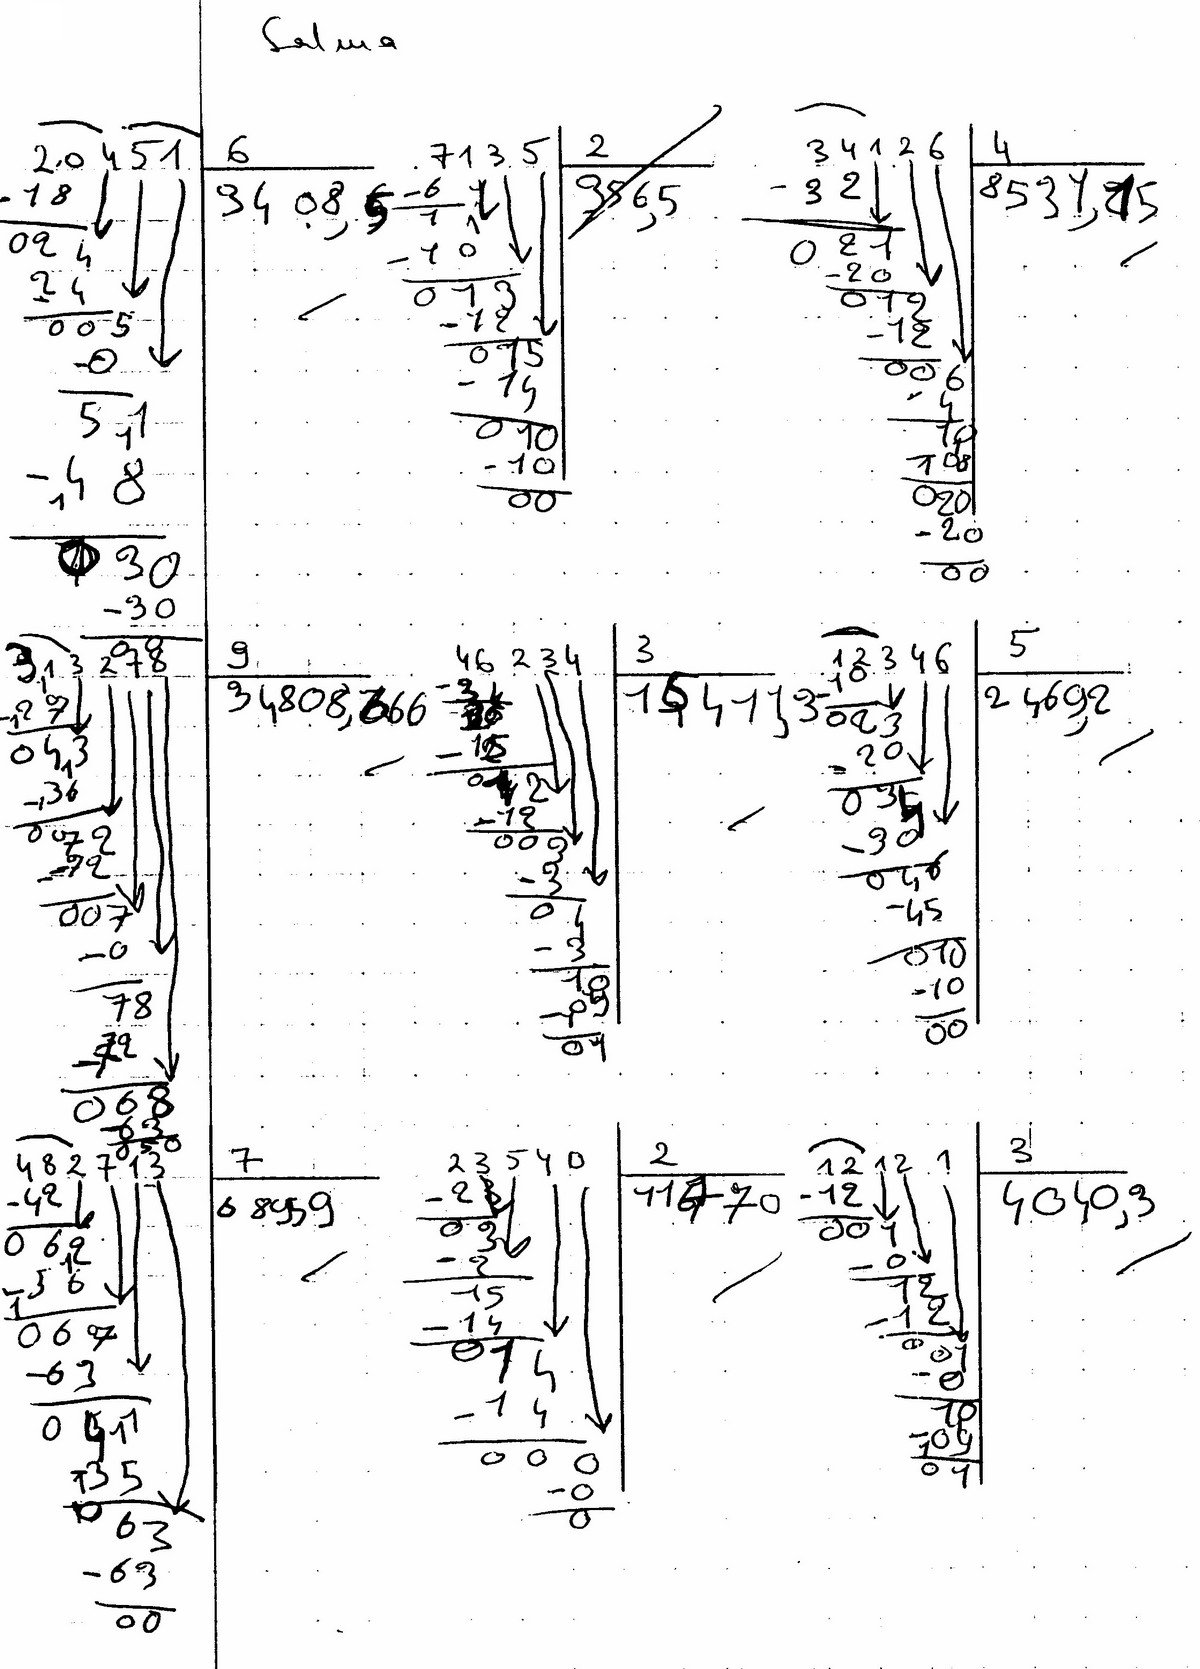 Salma
20451 6
-18 3408,5
024
-24
005
-0
51
-48
30
-30
00
7135 2
-6 3566,5
11
-10
013
-12
015
-14
010
-10
00
34126 4
-32 8531,5
021
-20
012
-12
006
-4
10
-08
020
-20
00
313278 9
-27 34808,666
043
-36
0072
-72
007
-0
78
-72
068
-63
050
46234 3
15411,3
-15
012
-12
003
-3
01
-3
10
-09
01
12346 5
-10 2469,2
023
-20
034
-30
046
-45
010
-10
00
482713 7
-42 68959
062
-56
067
-63
041
-35
063
-63
00
23540 2
-2 11770
03
-2
15
-14
014
-14
000
-0
0
12121 3
-12 4040,3
001
-0
12
-12
001
-0
10
-09
01